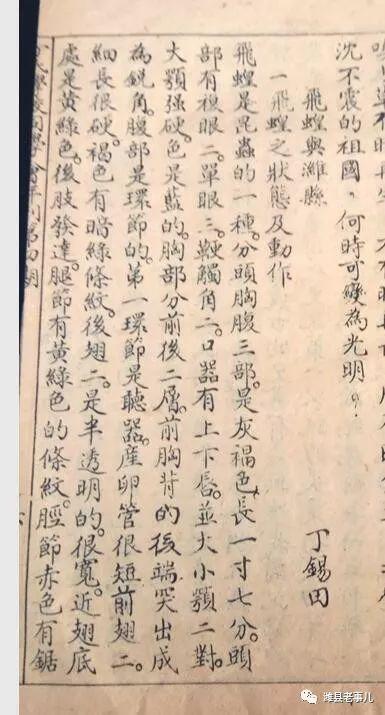 沈不震的祖國,何時可變為光明?
飛蝗與濰縣
丁錫田
一飛蝗之狀態及動作
飛蝗是昆蟲的一種。分頭胸腹三部。是灰褐色,長一寸七分。頭
部有複眼二。單眼三。鞭觸角二。口器有上下唇。並大小顎二對。
大顎强硬。色是藍的。胸部分前後二層。前胸背的後端突出成
為銳角。腹部是環節的。第一環節是聽器。產卵管很短。前翅二。
細長很硬。褐色有暗綠條紋。後翅二。是半透明的。很寬。近翅底
處是黃綠色。後肢發達。腿節有黃綠色的條紋。脛節赤色有鋸
第四期
濰县老事儿